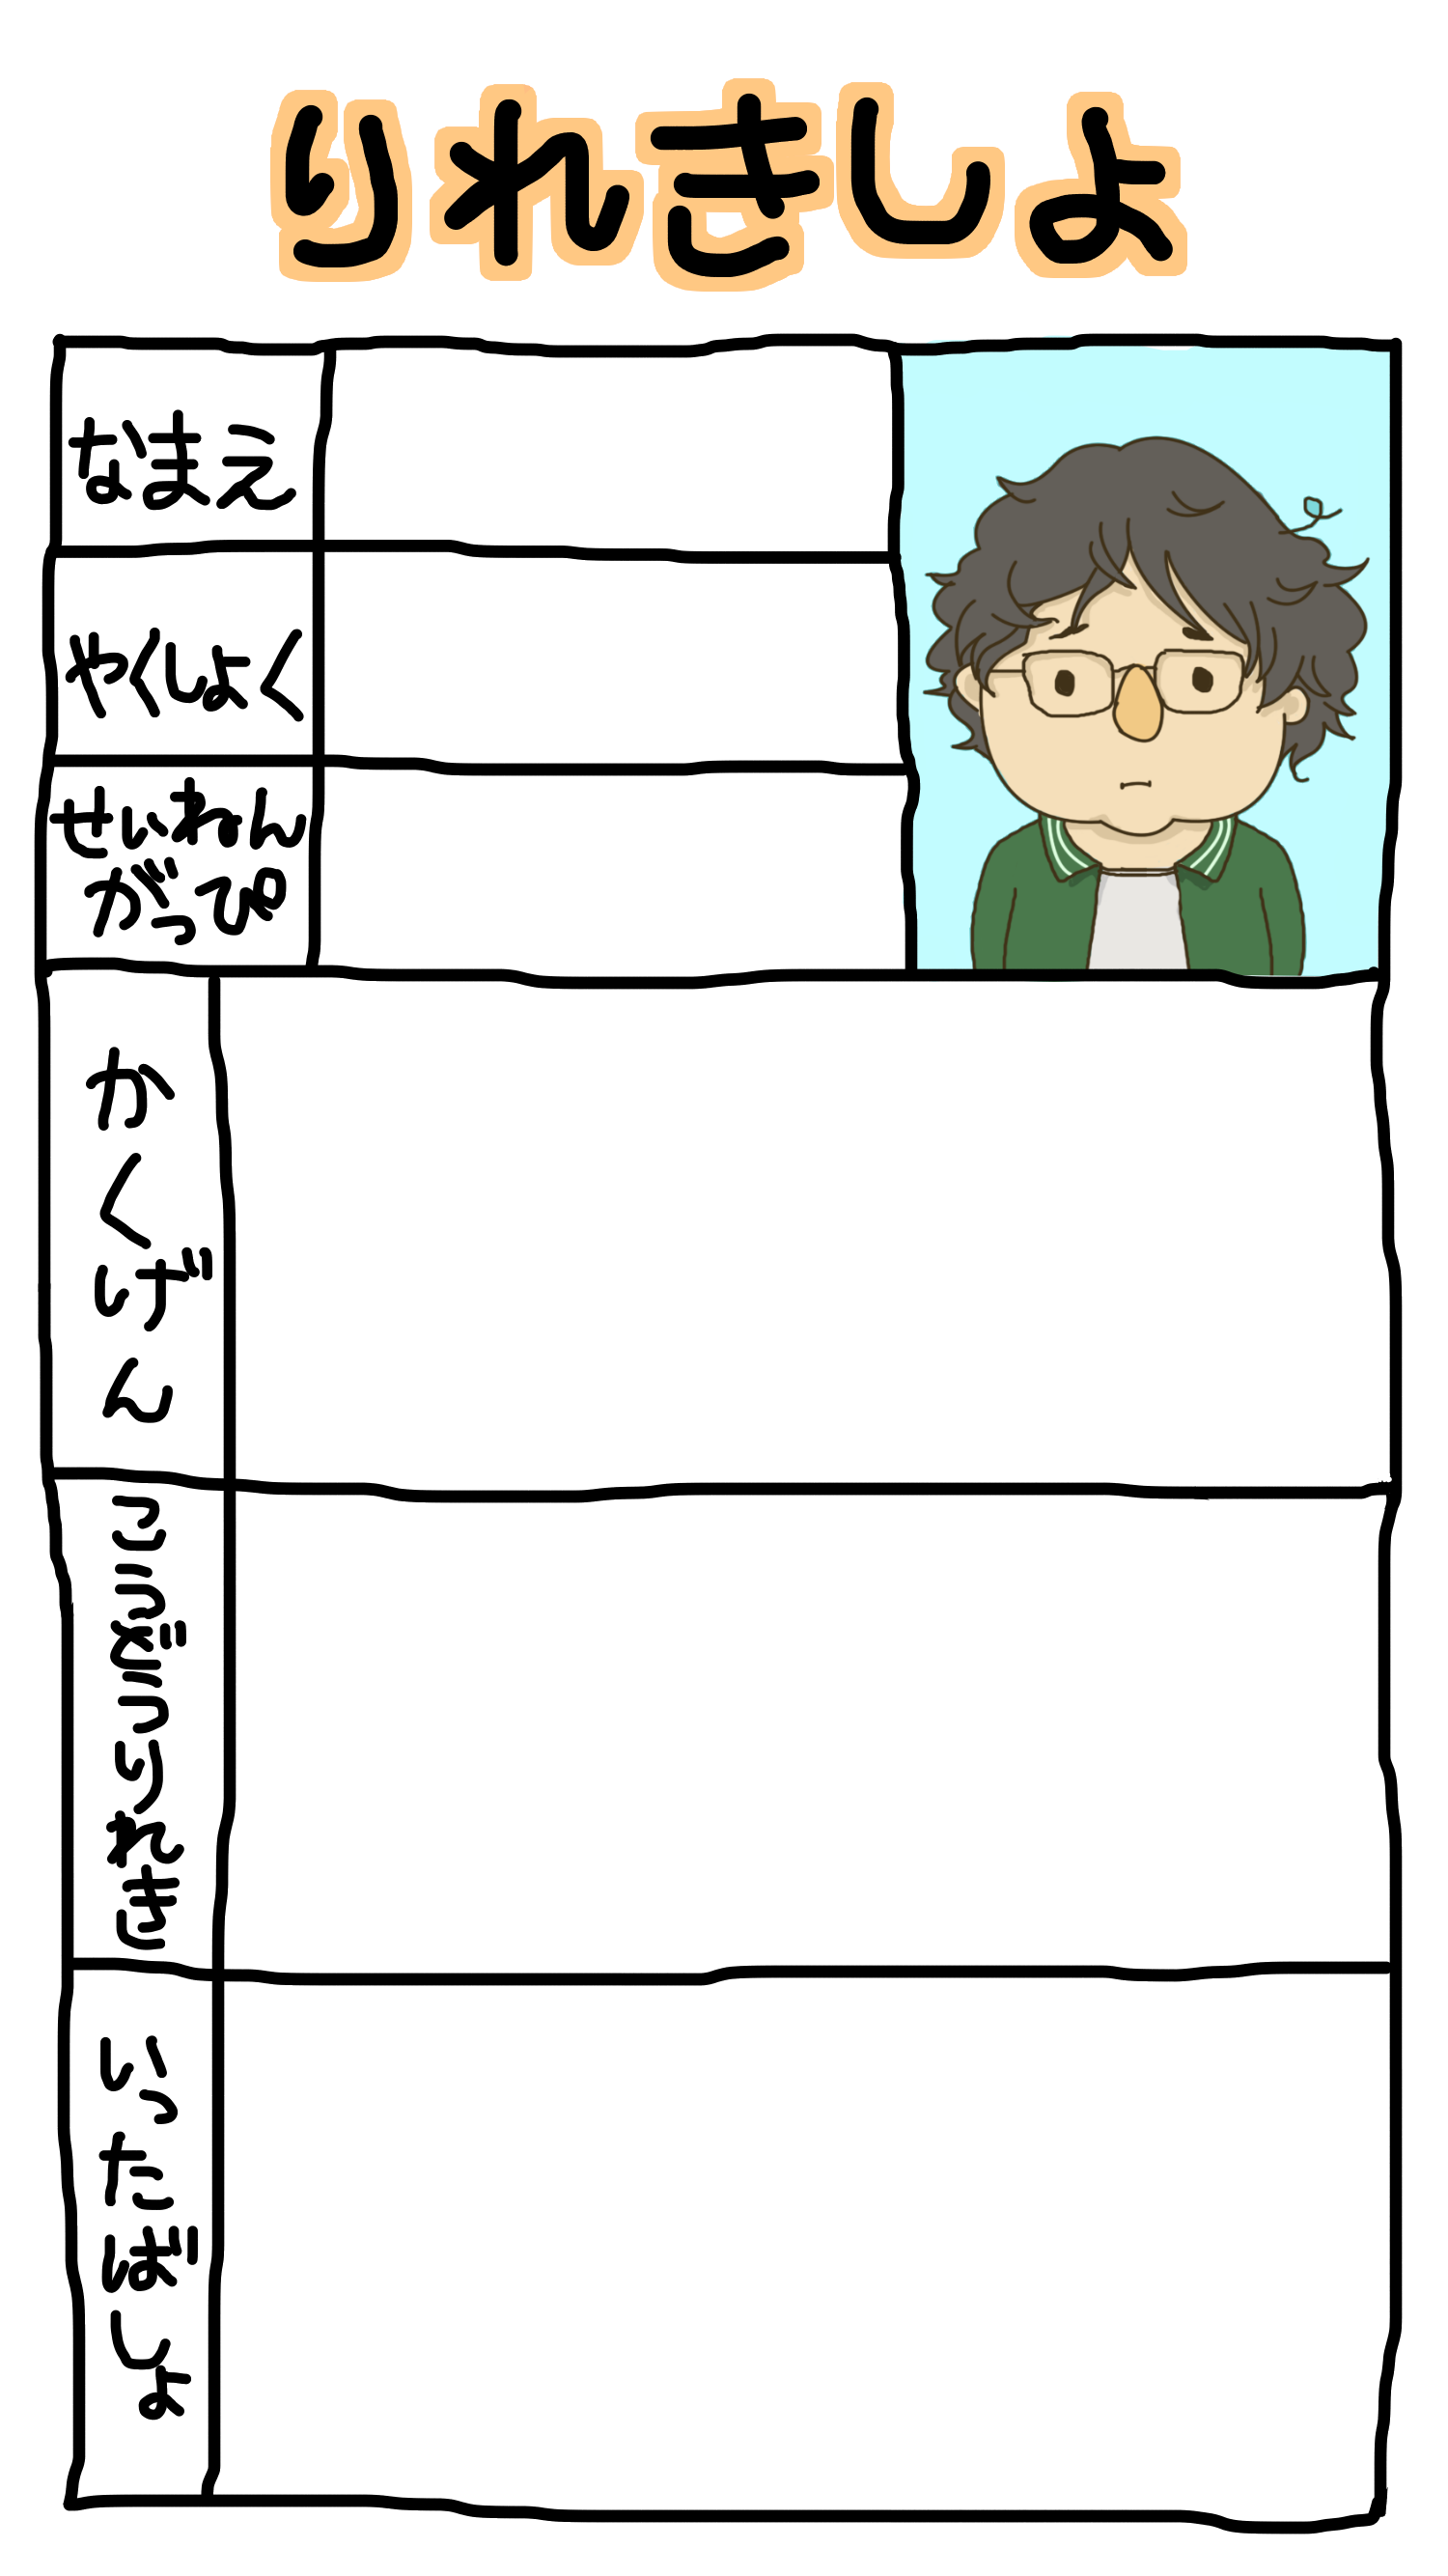 りれきしょ
なまえ
やくしょく
せいねん
がっぴ
かくげん
こうどうりれき
いったばしょ